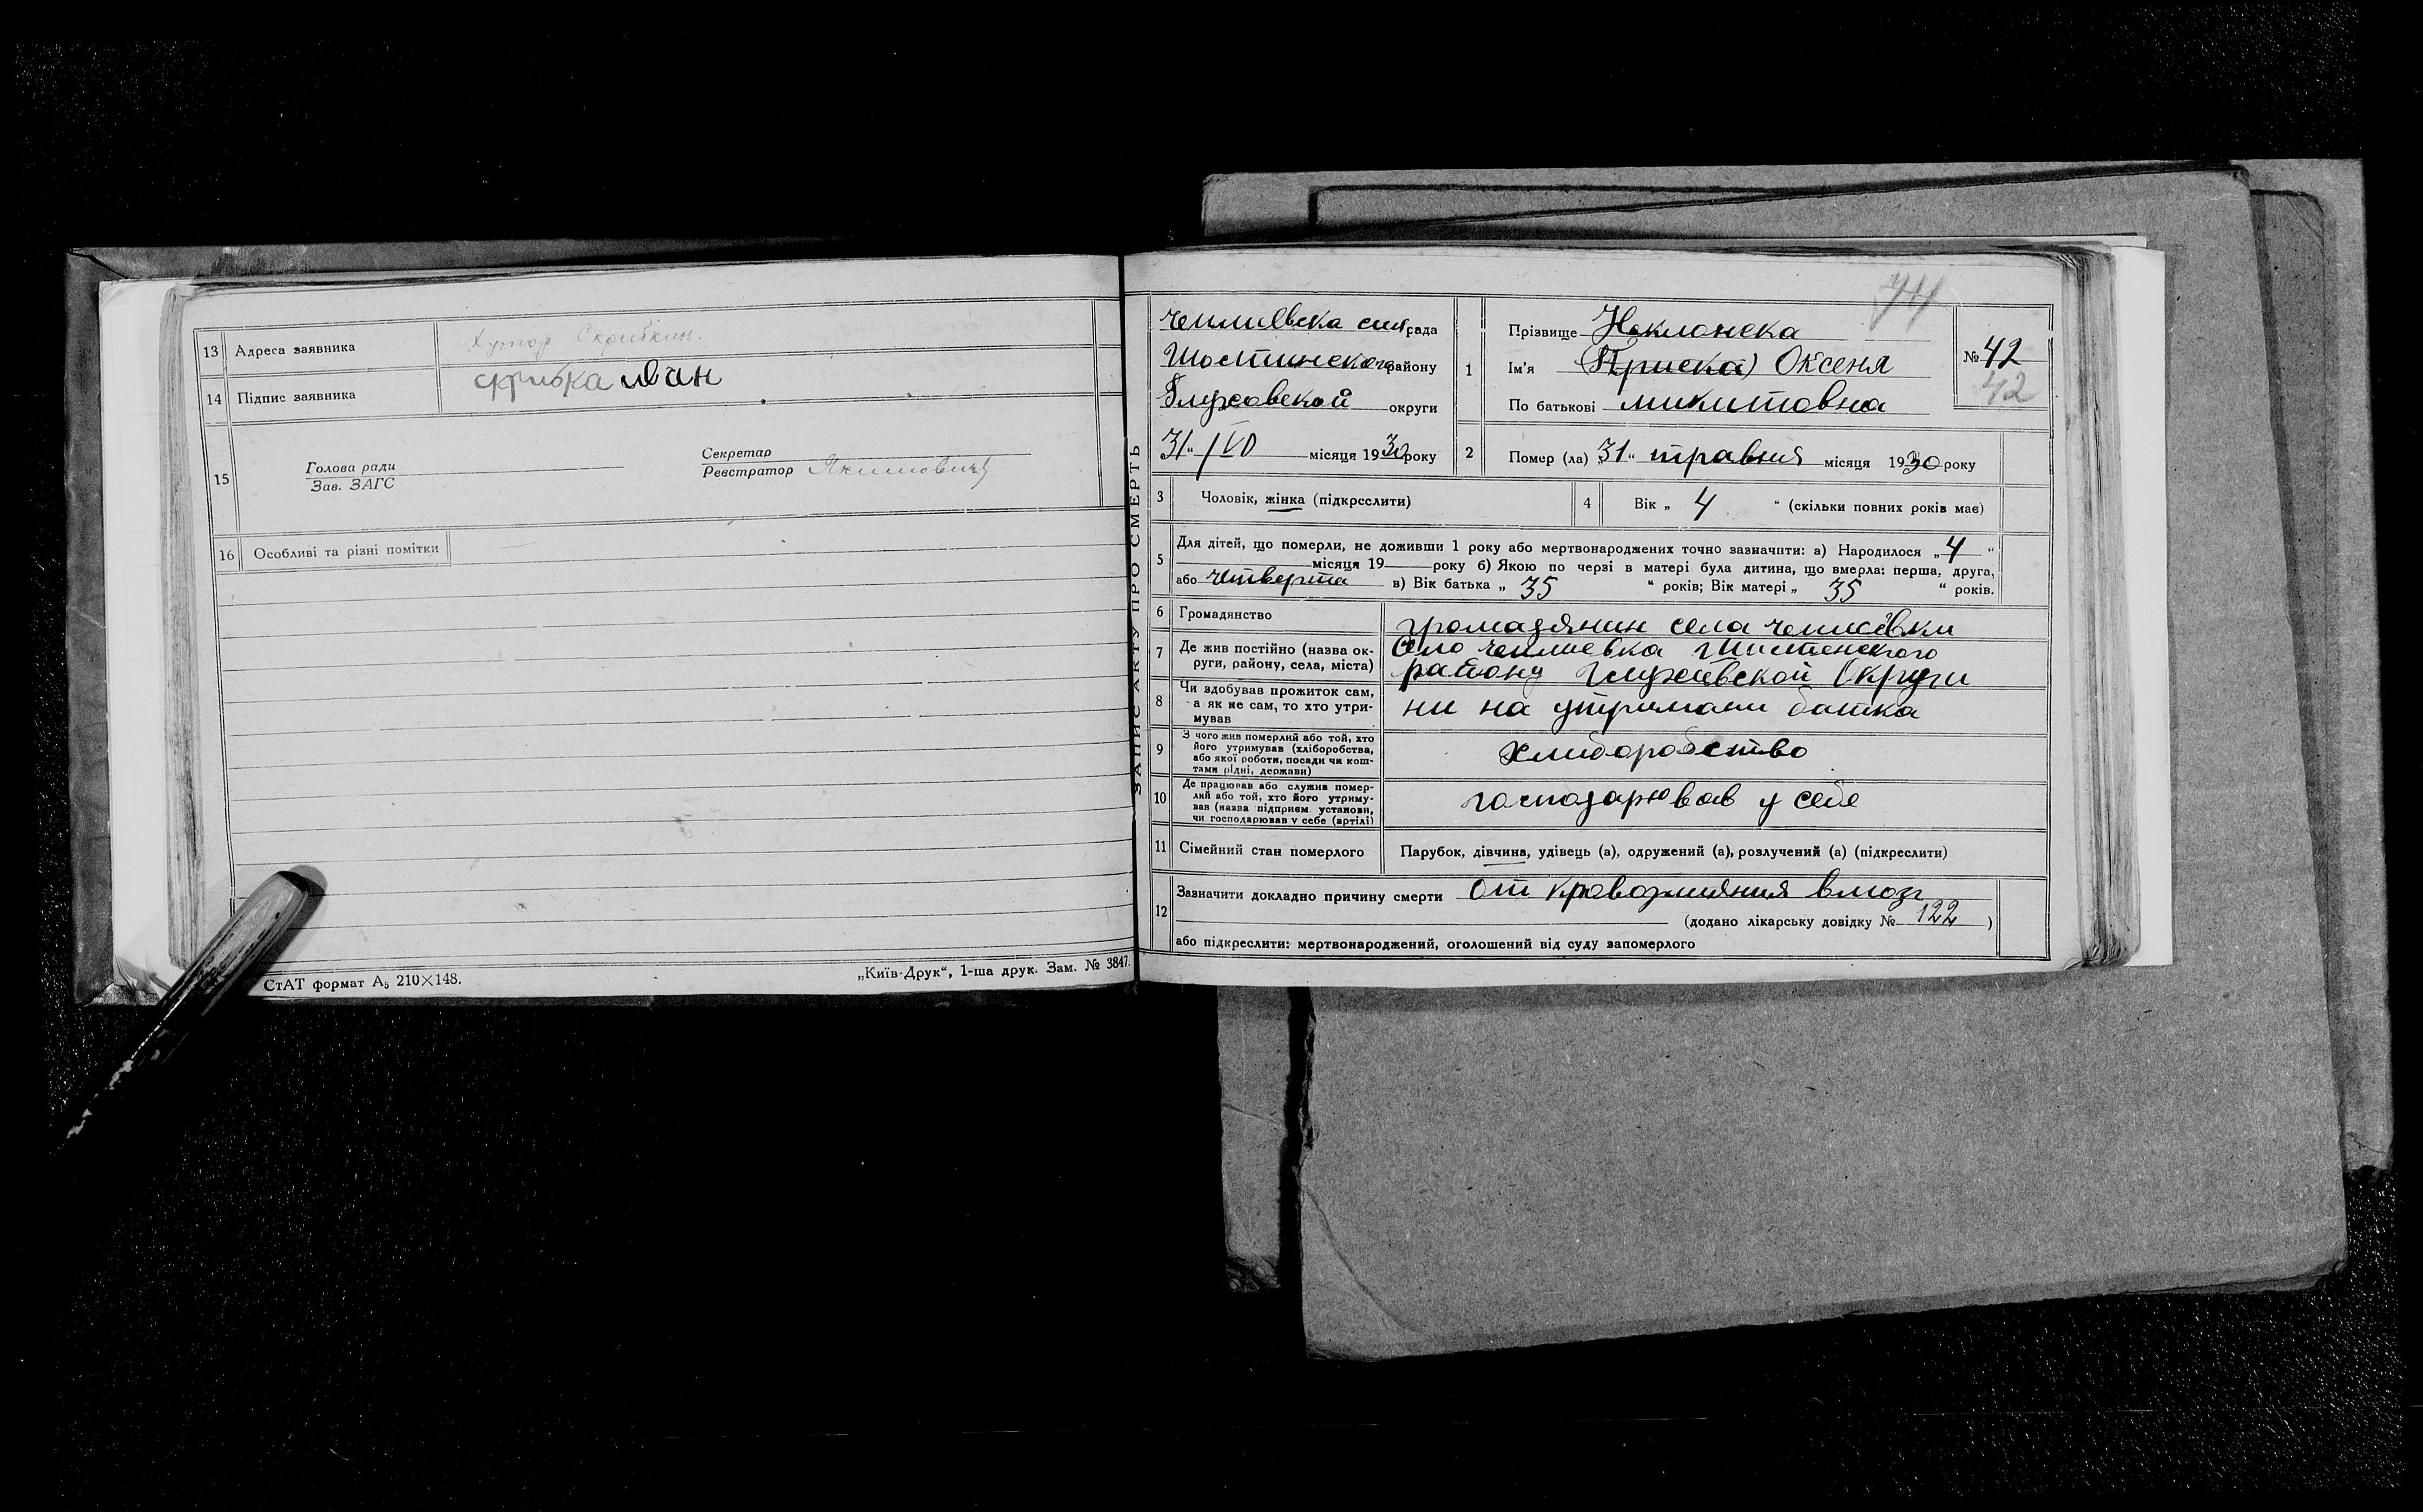 13 Адреса заявника Хутор Скрибкин.
14 Підпис заявника скрибка иван
15 Голова ради
Зав. ЗАГС
Секретар
Реєстратор Якимович
16 Особливі та різні помітки
СтАТ формат А₅ 210×148.
„Київ-Друк“, 1-ша друк. Зам. № 3847.
ЗАПИС АКТУ ПРО СМЕРТЬ
рада
Шостинского району
Глуховской округи
31 “ місяця 1930 року
1 Прізвище
Ім'я (Приска) Оксеня
По батькові микитовна
№ 42
42
2 Помер (ла) „31“ травня місяця 1930 року
3 Чоловік, жінка (підкреслити)
4 Вік „ 4 “ (скільки повних років має)
5 Для дітей, що померли, не доживши 1 року або мертвонароджених точно зазначити: а) Народилося „ 4 “
місяця 19 року б) Якою по черзі в матері була дитина, що вмерла: перша, друга,
або четверта в) Вік батька „ 35 “ років; Вік матері „ 35 “ років.
6 Громадянство громадянин села
7 Де жив постійно (назва ок-
руги, району, села, міста)
Село
району Округи
8 Чи здобував прожиток сам,
а як не сам, то хто утри-
мував
ни на утримани батка
9 З чого жив померлий або той, хто
його утримував (хліборобства,
або якої роботи, посади чи кош-
тами рідні, держави)
хлиборобство
10 Де працював або служив помер-
лий або той, хто його утриму-
вав (назва підприєм. установи,
чи господарював у себе (артілі)
господарював у себе
11 Сімейний стан померлого Парубок, дівчина, удівець (а), одружений (а), розлучений (а) (підкреслити)
12 Зазначити докладно причину смерти От вмозг
(додано лікарську довідку № 122 )
або підкреслити: мертвонароджений, оголошений від суду запомерлого